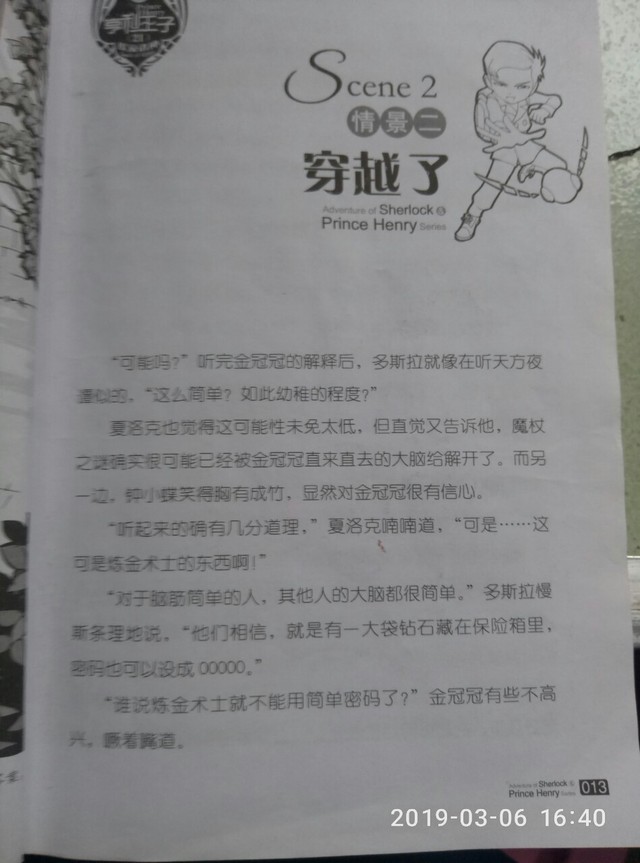 亨利王子
Scene 2
情景二
穿越了
Adventure of Sherlock &
Prince Henry Series
“可能吗？”听完金冠冠的解释后，多斯拉就像在听天方夜
谭似的，“这么简单？如此幼稚的程度？”
夏洛克也觉得这可能性未免太低，但直觉又告诉他，魔杖
之谜确实很可能已经被金冠冠直来直去的大脑给解开了。而另
一边，钟小蝶笑得胸有成竹，显然对金冠冠很有信心。
“听起来的确有几分道理，”夏洛克喃喃道，“可是……这
可是炼金术士的东西啊！”
“对于脑筋简单的人，其他人的大脑都很简单。”多斯拉慢
斯条理地说，“他们相信，就是有一大袋钻石藏在保险箱里，
密码也可以设成 00000。”
“谁说炼金术士就不能用简单密码了？”金冠冠有些不高
兴，噘着嘴道。
Adventure of Sherlock &
Prince Henry Series 013
2019-03-06 16:40